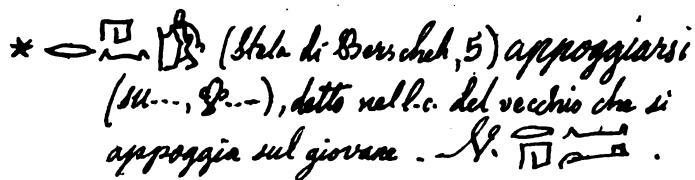 * 𓂋𓉔𓈖 (Stela di Berscheh, 5) appoggiarsi
(su..., 𓁷...), detto nel l.c. del vecchio che si
appoggia sul giovane. N. 𓂋𓉔